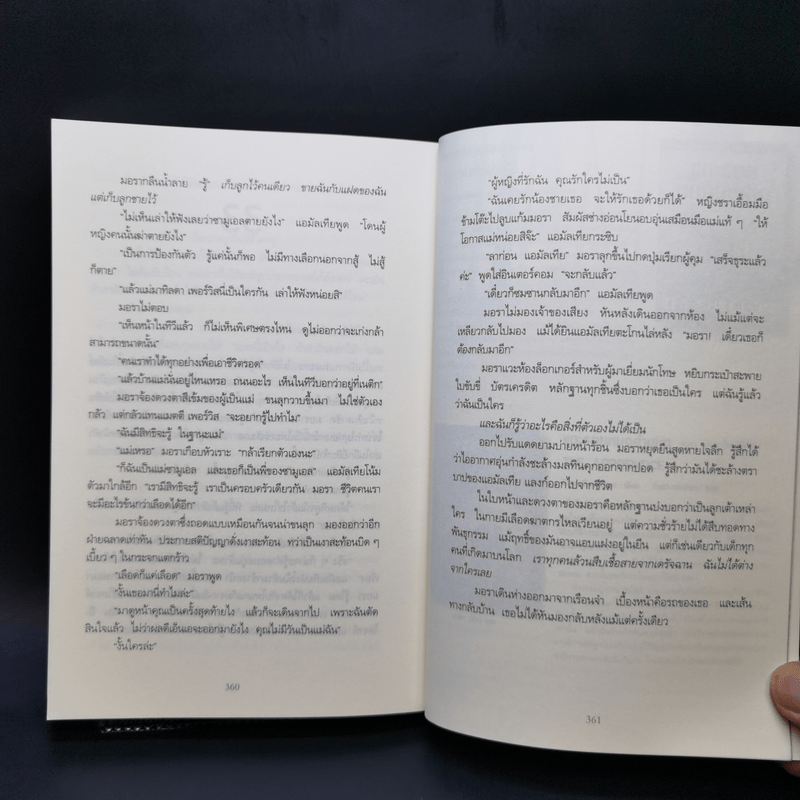 มอรากลืนน้ำลาย "รู้" เก็บลูกไว้คนเดียว ขายฉันกับแฝดของฉัน
แต่เก็บลูกชายไว้
"ไม่เห็นเล่าให้ฟังเลยว่าซามูเอลตายยังไง" แอมัลเทียพูด "โดนผู้
หญิงคนนั้นฆ่าตายยังไง"
"เป็นการป้องกันตัว รู้แค่นั้นก็พอ ไม่มีทางเลือกนอกจากสู้ ไม่สู้
ก็ตาย"
"แล้วแม่มาทิลดา เพอร์วิสนี่เป็นใครกัน เล่าให้ฟังหน่อยสิ"
มอราไม่ตอบ
"เห็นหน้าในทีวีแล้ว ก็ไม่เห็นพิเศษตรงไหน ดูไม่ออกว่าจะเก่งกล้า
สามารถขนาดนั้น"
"คนเราทำได้ทุกอย่างเพื่อเอาชีวิตรอด"
"แล้วบ้านแม่นั่นอยู่ไหนเหรอ ถนนอะไร เห็นในทีวีบอกว่าอยู่ที่เนติก"
มอราจ้องดวงตาสีเข้มของผู้เป็นแม่ ขนลุกวาบขึ้นมา ไม่ใช่ตัวเอง
กลัว แต่กลัวแทนแมตตี เพอร์วิส "จะอยากรู้ไปทำไม"
"ฉันมีสิทธิจะรู้ ในฐานะแม่"
"แม่เหรอ" มอราเกือบหัวเราะ "กล้าเรียกตัวเองนะ"
"ก็ฉันเป็นแม่ซามูเอล และเธอก็เป็นพี่ของซามูเอล" แอมัลเทียโน้ม
ตัวมาใกล้อีก "เรามีสิทธิจะรู้ เราเป็นครอบครัวเดียวกัน มอรา ชีวิตคนเรา
จะมีอะไรข้นกว่าเลือดได้อีก"
มอราจ้องดวงตาซึ่งถอดแบบเหมือนกันจนน่าขนลุก มองออกว่าอีก
ฝ่ายฉลาดเท่าทัน ประกายสติปัญญาดั่งเงาสะท้อน ทว่าเป็นเงาสะท้อนบิด ๆ
เบี้ยว ๆ ในกระจกแตกร้าว
"เลือดก็แค่เลือด" มอราพูด
"งั้นเธอมานี่ทำไมล่ะ"
"มาดูหน้าคุณเป็นครั้งสุดท้ายไง แล้วก็จะเดินจากไป เพราะฉันตัด
สินใจแล้ว ไม่ว่าผลดีเอ็นเอจะออกมายังไง คุณไม่มีวันเป็นแม่ฉัน"
"งั้นใครล่ะ"
360
"ผู้หญิงที่รักฉัน คุณรักใครไม่เป็น"
"ฉันเคยรักน้องชายเธอ จะให้รักเธอด้วยก็ได้" หญิงชราเอื้อมมือ
ข้ามโต๊ะไปลูบแก้มมอรา สัมผัสช่างอ่อนโยนอบอุ่นเสมือนมือแม่แท้ ๆ "ให้
โอกาสแม่หน่อยสิจ๊ะ" แอมัลเทียกระซิบ
"ลาก่อน แอมัลเทีย" มอราลุกขึ้นไปกดปุ่มเรียกผู้คุม "เสร็จธุระแล้ว
ค่ะ" พูดใส่อินเตอร์คอม "จะกลับแล้ว"
"เดี๋ยวก็ซมซานกลับมาอีก" แอมัลเทียพูด
มอราไม่มองเจ้าของเสียง หันหลังเดินออกจากห้อง ไม่แม้แต่จะ
เหลียวกลับไปมอง แม้ได้ยินแอมัลเทียตะโกนไล่หลัง "มอรา! เดี๋ยวเธอก็
ต้องกลับมาอีก"
มอราแวะห้องล็อกเกอร์สำหรับผู้มาเยี่ยมนักโทษ หยิบกระเป๋าสะพาย
ใบขับขี่ บัตรเครดิต หลักฐานทุกชิ้นซึ่งบอกว่าเธอเป็นใคร แต่ฉันรู้แล้ว
ว่าฉันเป็นใคร
และฉันก็รู้ว่าอะไรคือสิ่งที่ตัวเองไม่ได้เป็น
ออกไปรับแดดยามบ่ายหน้าร้อน มอราหยุดยืนสูดหายใจลึก รู้สึกได้
ว่าไออากาศอุ่นกำลังชะล้างมลทินคุกออกจากปอด รู้สึกว่ามันได้ชะล้างตรา
บาปของแอมัลเทีย แลงก์ออกไปจากชีวิต
ในใบหน้าและดวงตาของมอราคือหลักฐานบ่งบอกว่าเป็นลูกเต้าเหล่า
ใคร ในกายมีเลือดฆาตกรไหลเวียนอยู่ แต่ความชั่วร้ายไม่ได้สืบทอดทาง
พันธุกรรม แม้ฤทธิ์ของมันอาจแอบแฝงอยู่ในยีน แต่ก็เช่นเดียวกับเด็กทุก
คนที่เกิดมาบนโลก เราทุกคนล้วนสืบเชื้อสายจากเดรัจฉาน ฉันไม่ได้ต่าง
จากใครเลย
มอราเดินห่างออกมาจากเรือนจำ เบื้องหน้าคือรถของเธอ และเส้น
ทางกลับบ้าน เธอไม่ได้หันมองกลับหลังแม้แต่ครั้งเดียว
361